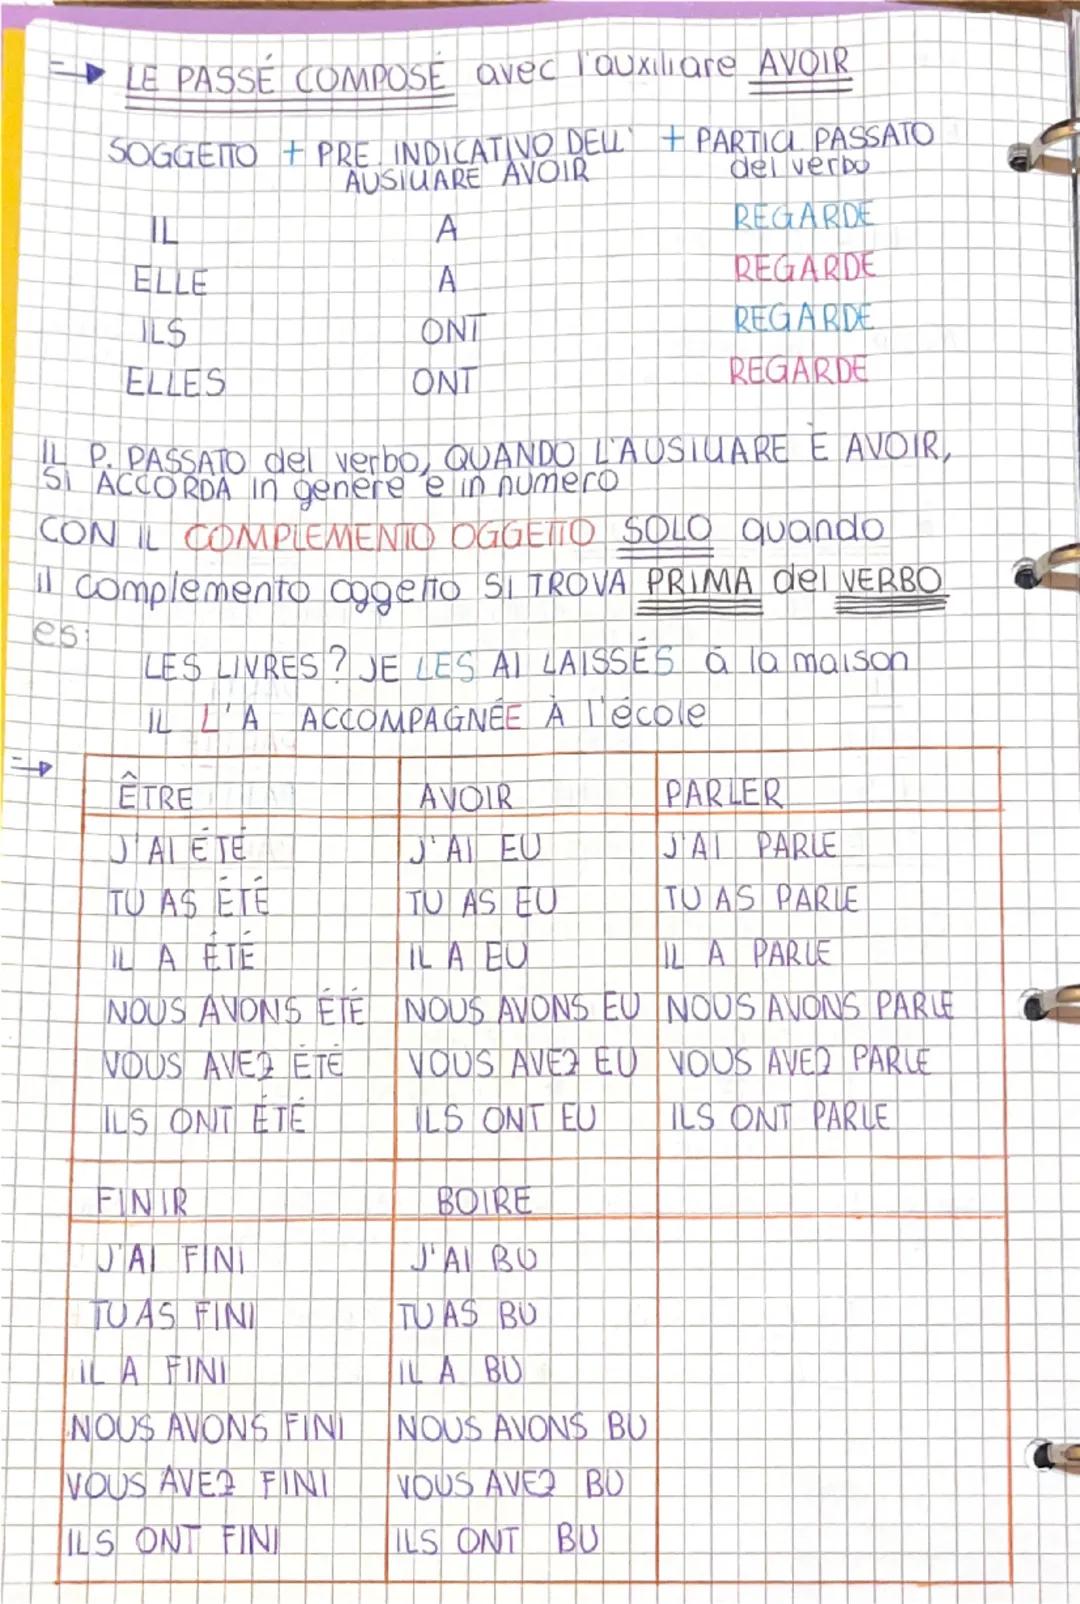 LE PASSÉ COMPOSÉ avec l'auxiliare AVOIR
SOGGETTO + PRE. INDICATIVO DELL' + PARTICI. PASSATO
AUSILIARE AVOIR del verbo
IL A REGARDE
ELLE A REGARDE
ILS ONT REGARDE
ELLES ONT REGARDE
IL P. PASSATO del verbo, QUANDO L'AUSILIARE È AVOIR,
SI ACCORDA in genere e in numero
CON IL COMPLEMENTO OGGETTO SOLO quando
il complemento oggetto SI TROVA PRIMA del VERBO
es:
LES LIVRES? JE LES AI LAISSÉS à la maison
IL L'A ACCOMPAGNÉE À l'école
ÊTRE AVOIR PARLER
J'AI ÉTÉ J'AI EU J'AI PARLE
TU AS ÉTÉ TU AS EU TU AS PARLE
IL A ÉTÉ IL A EU IL A PARLE
NOUS AVONS ÉTÉ NOUS AVONS EU NOUS AVONS PARLE
VOUS AVEZ ÉTÉ VOUS AVEZ EU VOUS AVEZ PARLE
ILS ONT ÉTÉ ILS ONT EU ILS ONT PARLE
FINIR BOIRE
J'AI FINI J'AI BU
TU AS FINI TU AS BU
IL A FINI IL A BU
NOUS AVONS FINI NOUS AVONS BU
VOUS AVEZ FINI VOUS AVEZ BU
ILS ONT FINI ILS ONT BU